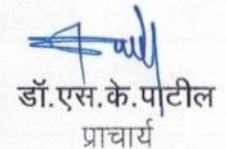 डॉ.एस.के.पाटील
प्राचार्य